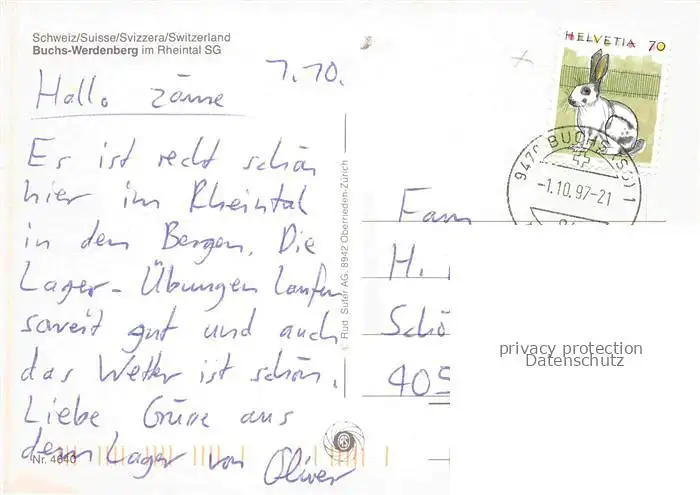 Schweiz/Suisse/Svizzera/Switzerland
Buchs-Werdenberg im Rheintal SG
1.10.
Hallo zäme
Es ist recht schön
hier im Rheintal
in den Bergen. Die
Lager-Übungen laufen
soweit gut und auch
das Wetter ist schön.
Liebe Grüsse aus
dem Lager von Oliver
Nr. 4640
Rud. Suter AG, 8942 Oberrieden-Zürich
HELVETIA 70
9470 BUCHS (SG) 1
-1.10.97-21
Fam
H.
Schö
405
privacy protection
Datenschutz